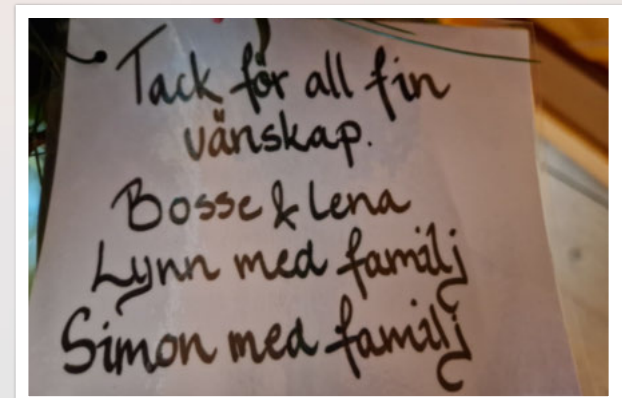 Tack för all fin
vänskap.
Bosse & Lena
Lynn med familj
Simon med familj